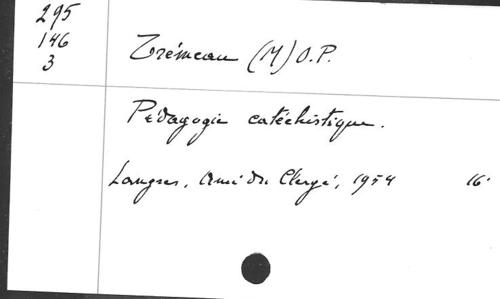 295
146
3
Trémeau (M) O.P.
Pédagogie catéchistique.
Langres, Ami du Clergé, 1954 16°